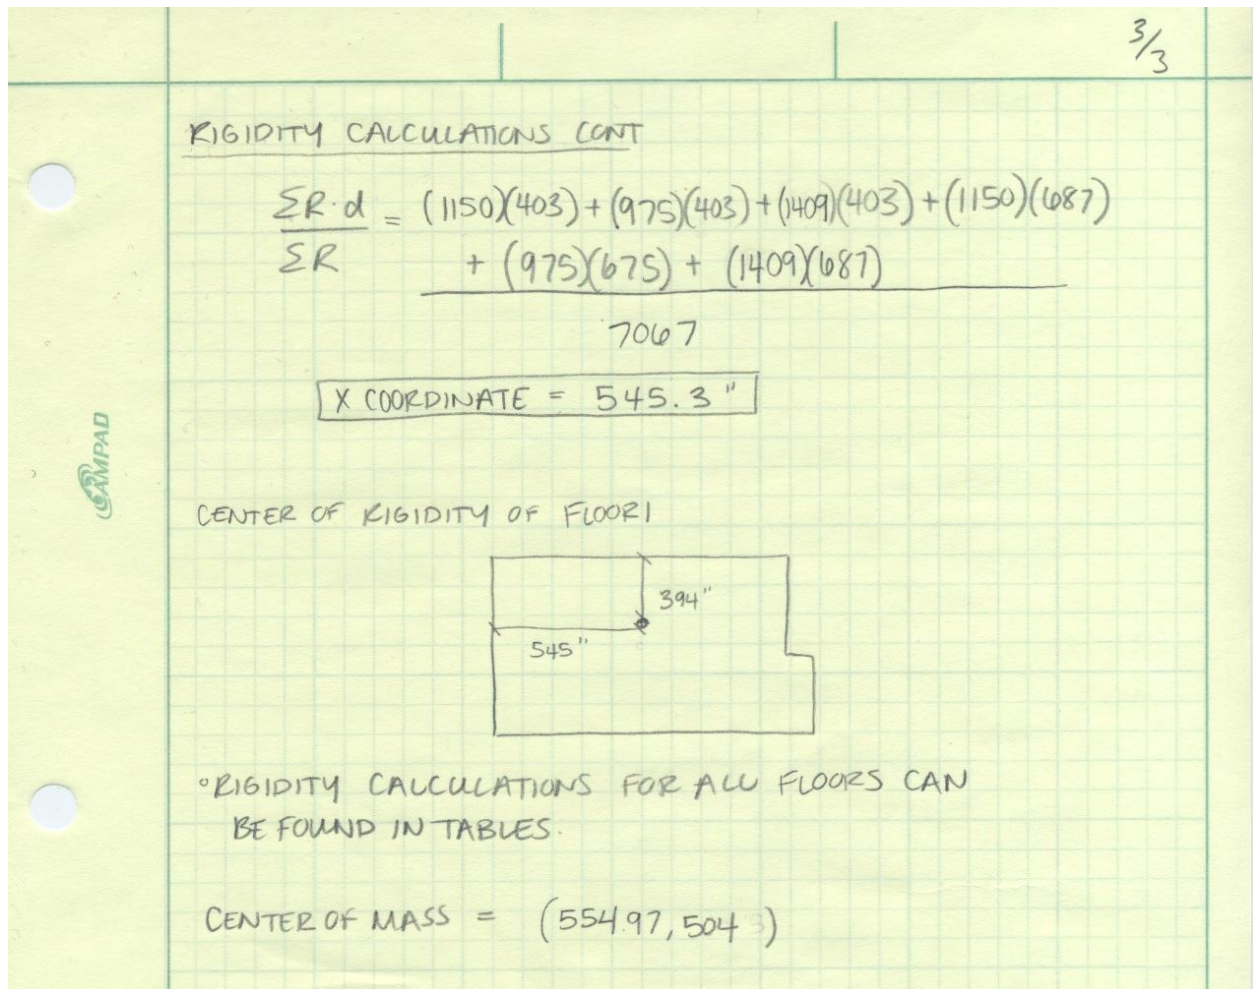 3/3
RIGIDITY CALCULATIONS CONT
ΣR·d = (1150)(403) + (975)(403) + (1409)(403) + (1150)(687)
ΣR + (975)(675) + (1409)(687)
7067
X COORDINATE = 545.3"
CAMPAD
CENTER OF RIGIDITY OF FLOOR 1
394"
545"
°RIGIDITY CALCULATIONS FOR ALL FLOORS CAN
BE FOUND IN TABLES.
CENTER OF MASS = (554.97, 504 )